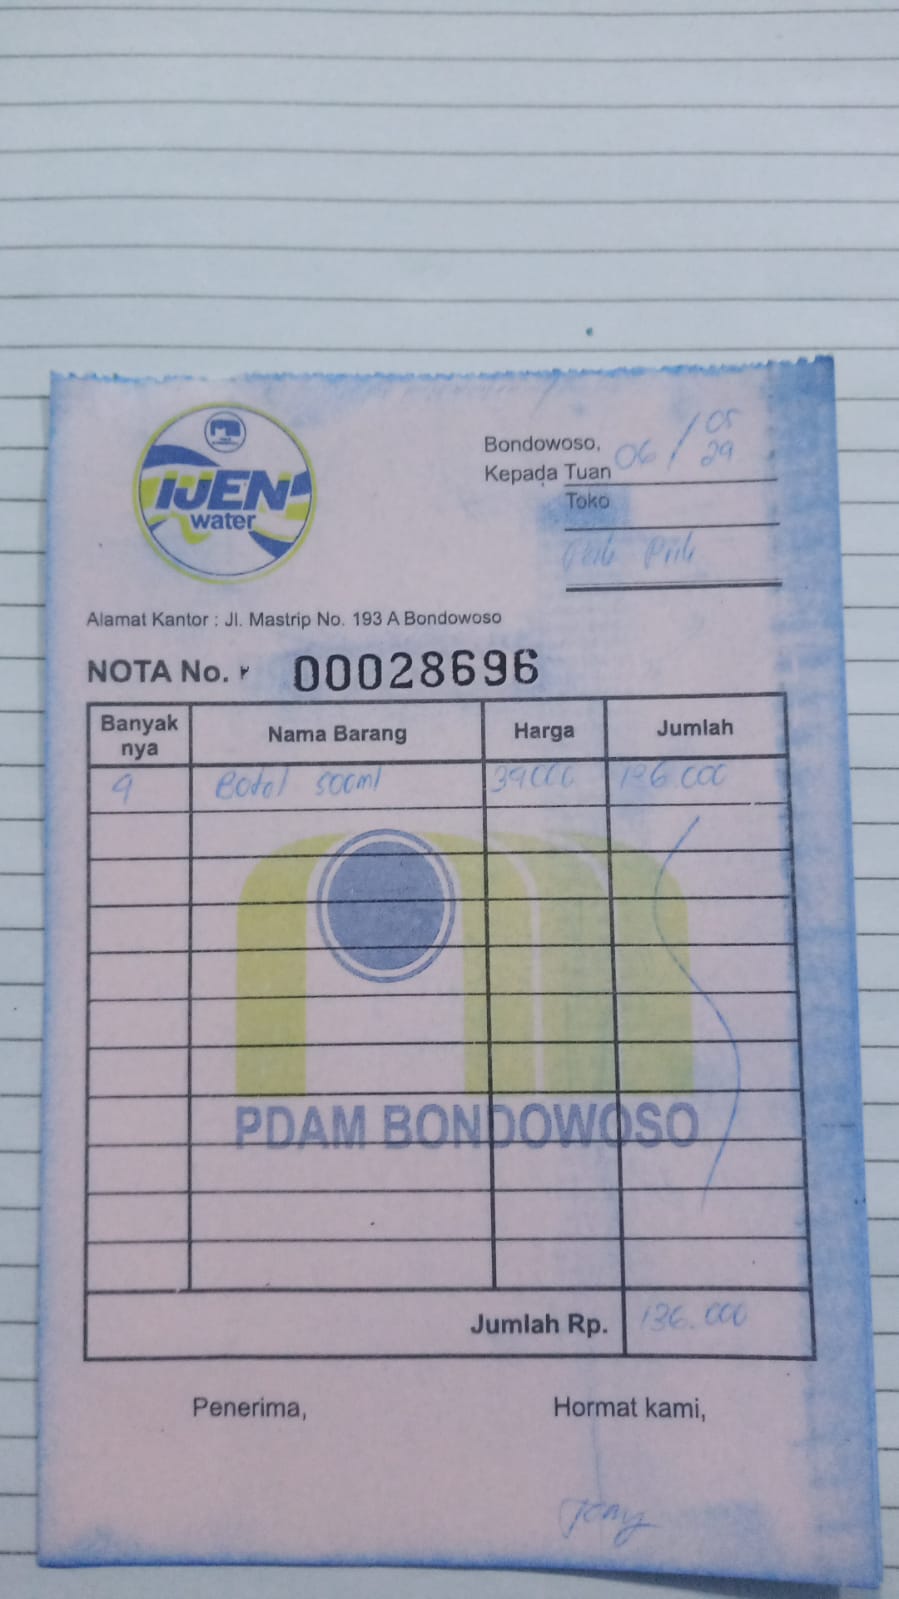 IJEN
water
Bondowoso, 06 / 05
Kepada Tuan
Toko
Alamat Kantor : Jl. Mastrip No. 193 A Bondowoso
NOTA No. 00028696
Banyak nya Nama Barang Harga Jumlah
Botol 500ml
PDAM BONDOWOSO
Jumlah Rp. 136.000
Penerima, Hormat kami,